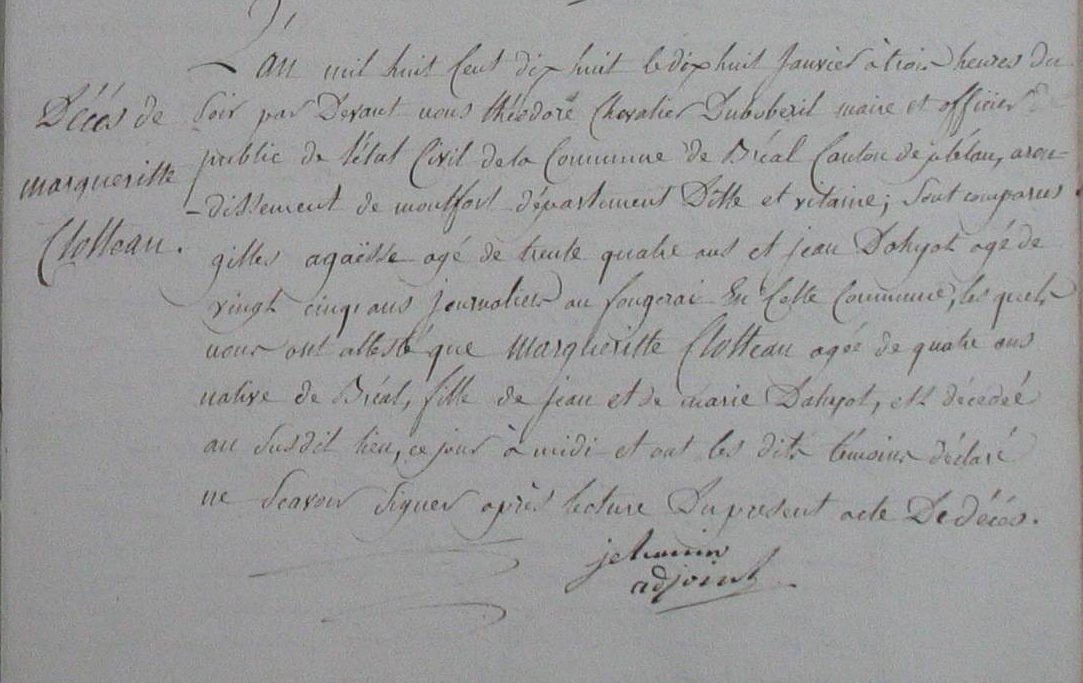 L'an mil huit Cent dix huit le dix huit Janvier à trois heures du
Décés de
soir par Devant nous théodore Chevalier Duboberil maire et officier
public de l'état Civil de la Commune de Bréal Canton de plélan, aron-
margueritte
-dissement de montfort département Dille et vilaine; sont comparus
Clotteau.
gilles agaësse agé de trente quatre ans et jean Dahyot agé de
vingt cinq ans journaliers au fougerai En Cette Commune, les quels
nous ont attesté que Margueritte Clotteau agée de quatre ans
native de Bréal, fille de jean et de marie Dahyot, est décedeé
au susdit lieu, ce jour à midi et ont les dits témoins déclaré
ne scavoir signer après lecture Du présent acte De décés.
adjoint